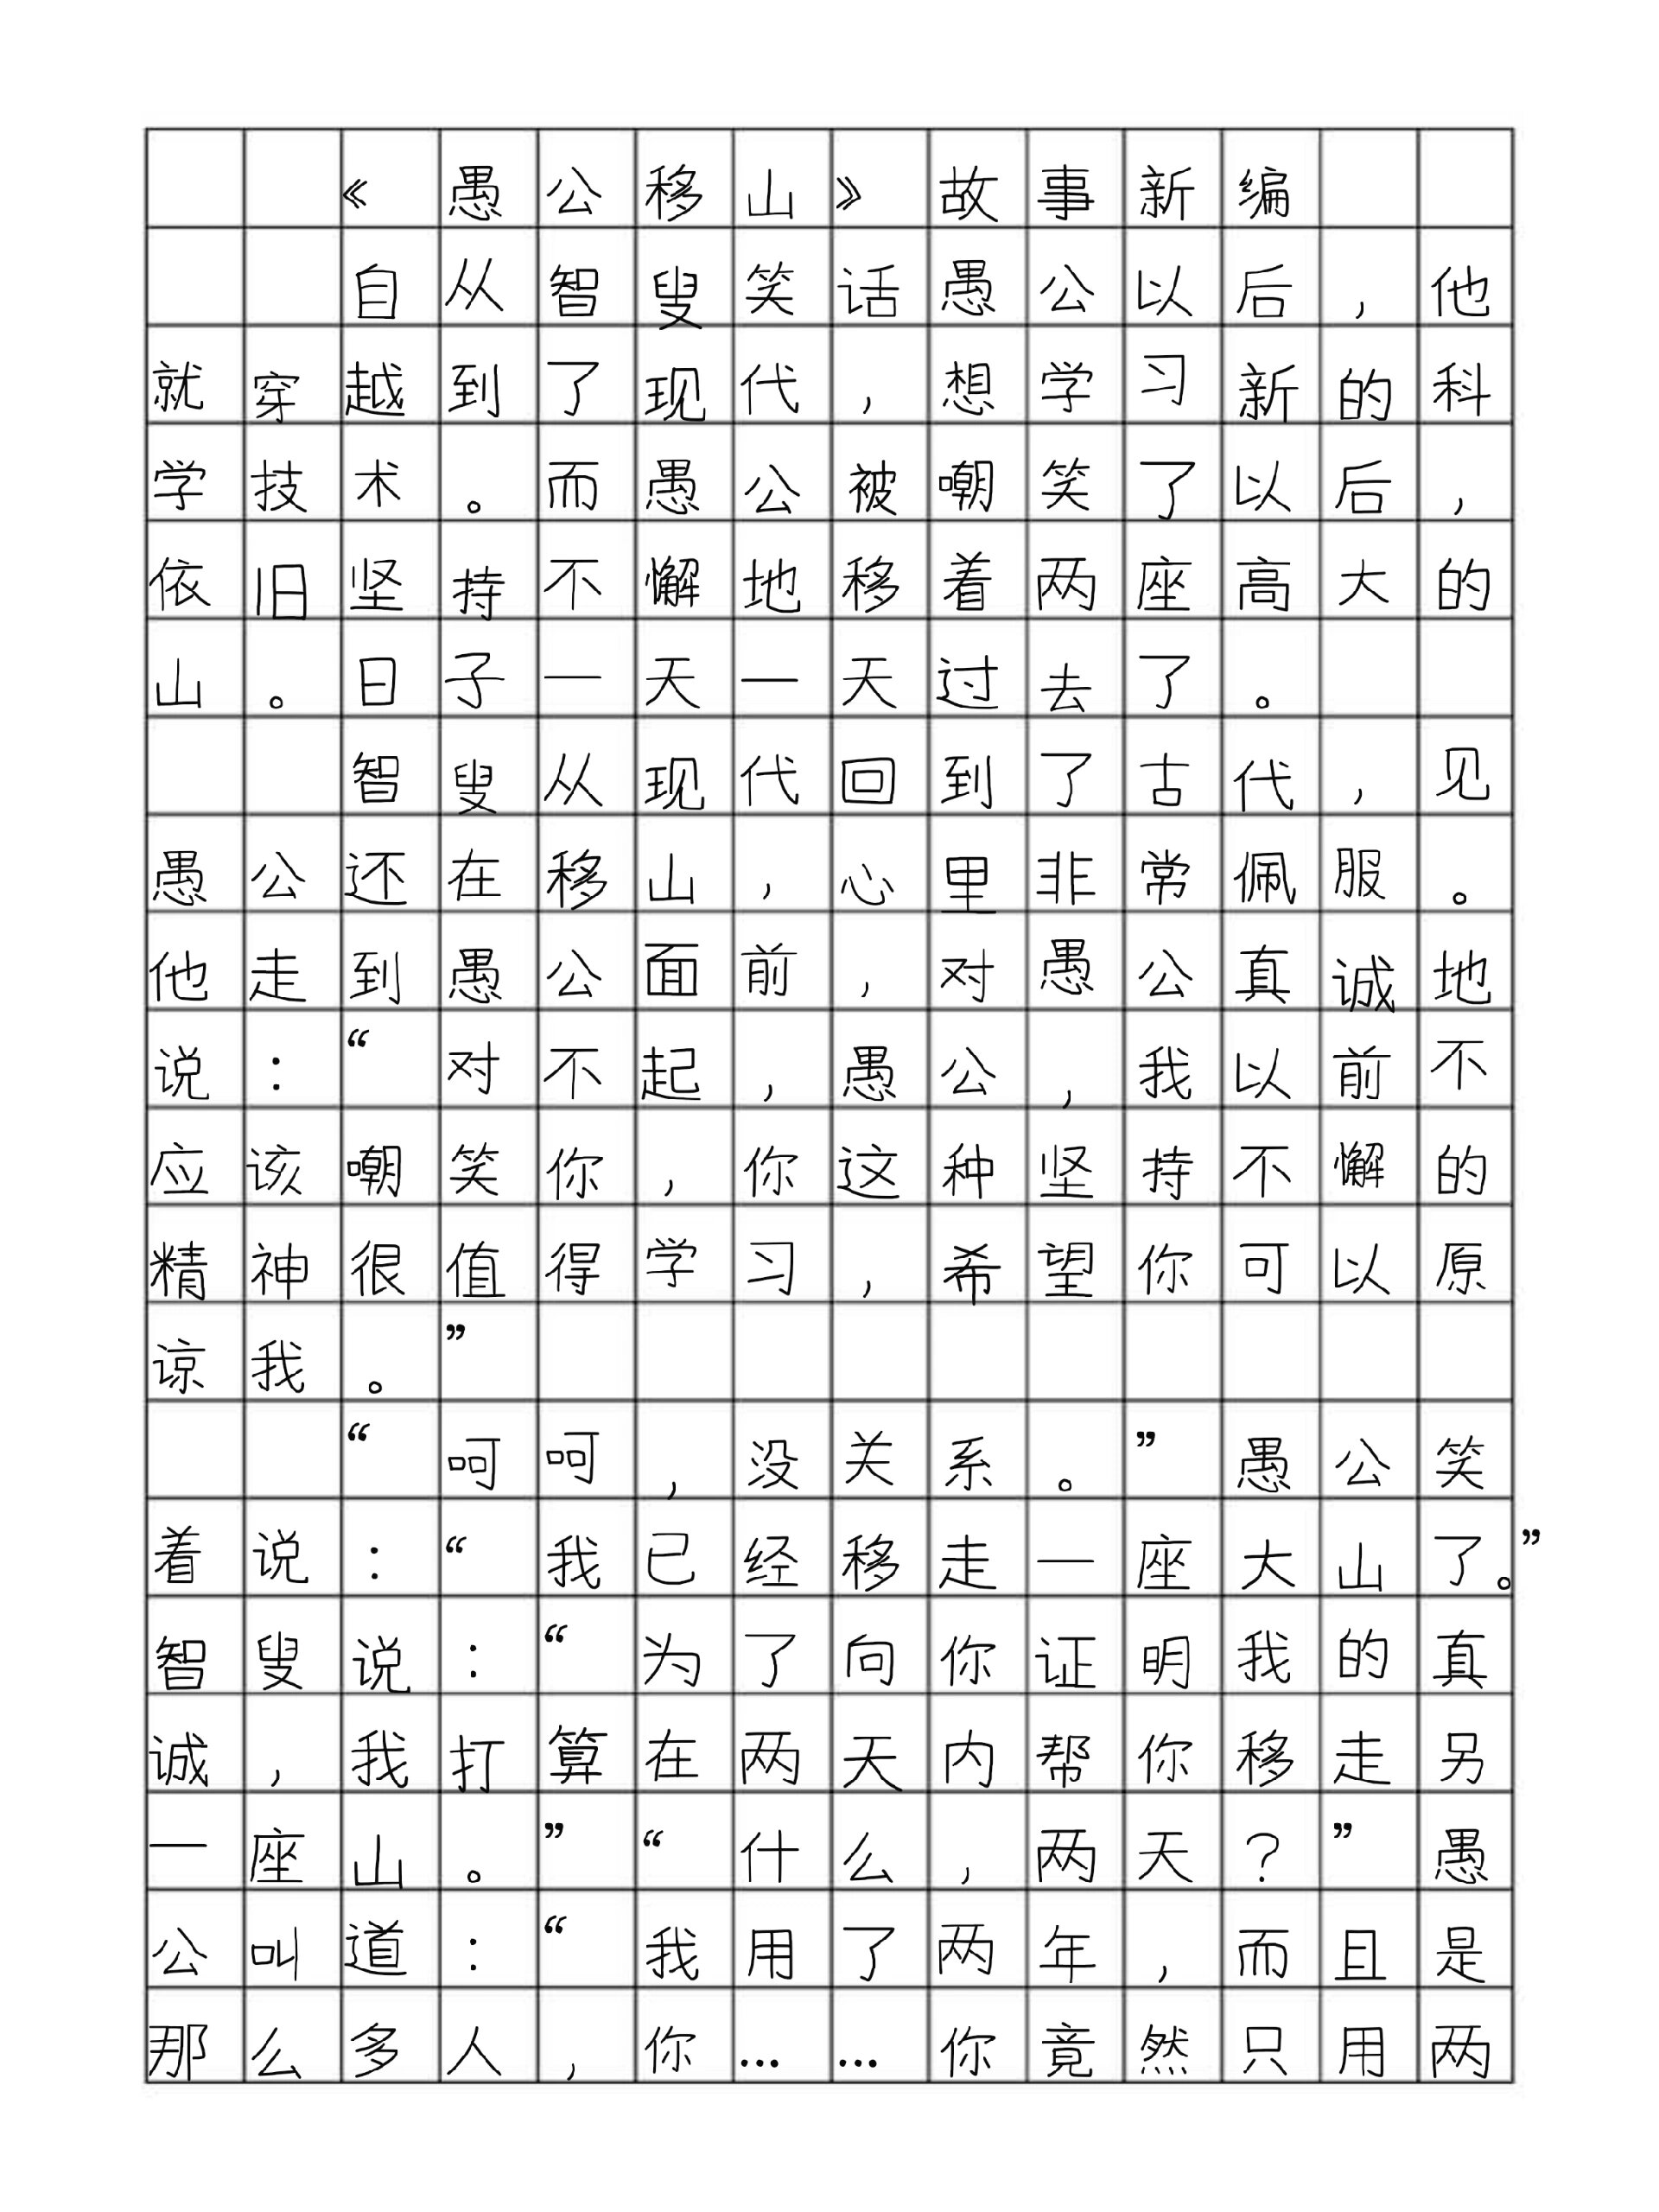 《愚公移山》故事新编
自从智叟笑话愚公以后，他
就穿越到了现代，想学习新的科
学技术。而愚公被嘲笑了以后，
依旧坚持不懈地移着两座高大的
山。日子一天一天过去了。
智叟从现代回到了古代，见
愚公还在移山，心里非常佩服。
他走到愚公面前，对愚公真诚地
说：“对不起，愚公，我以前不
应该嘲笑你，你这种坚持不懈的
精神很值得学习，希望你可以原
谅我。”
“呵呵，没关系。”愚公笑
着说：“我已经移走一座大山了。”
智叟说：“为了向你证明我的真
诚，我打算在两天内帮你移走另
一座山。”“什么，两天？”愚
公叫道：“我用了两年，而且是
那么多人，你……你竟然只用两